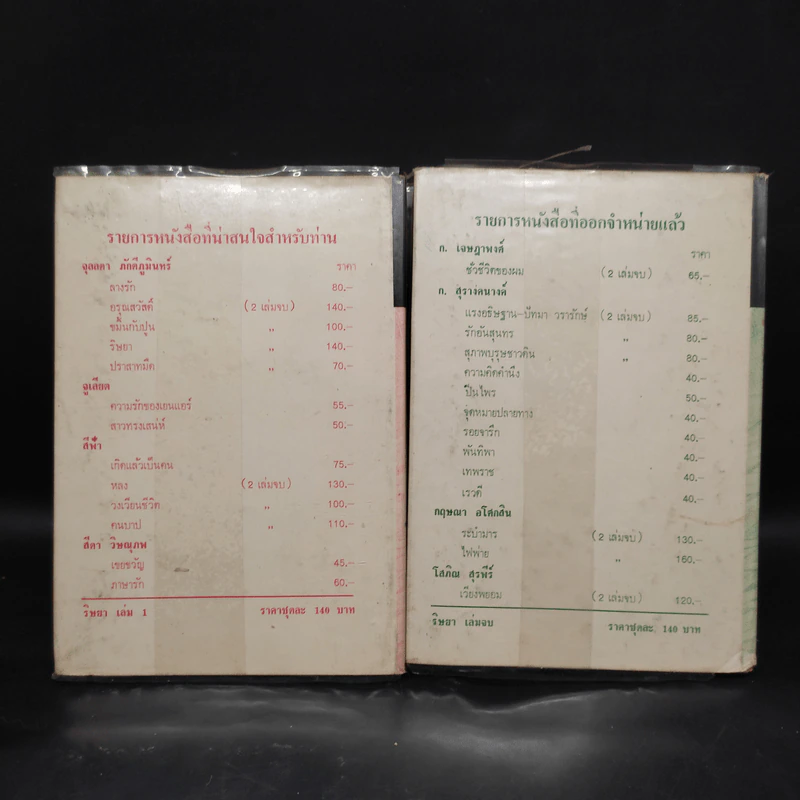 รายการหนังสือที่น่าสนใจสำหรับท่าน
จุลลดา ภักดีภูมินทร์ ราคา
ลางรัก 80.-
อรุณสวัสดิ์ (2 เล่มจบ) 140.-
ขมิ้นกับปูน ,, 100.-
ริษยา ,, 140.-
ปราสาทมืด ,, 70.-
จูเลียต
ความรักของเยนแอร์ 55.-
สาวทรงเสน่ห์ 50.-
สีฟ้า
เกิดแล้วเป็นคน 75.-
หลง (2 เล่มจบ) 130.-
วงเวียนชีวิต ,, 100.-
คนบาป ,, 110.-
สีดา วิษณุภพ
เขยขวัญ 45.-
ภาษารัก 60.-
ริษยา เล่ม 1 ราคาชุดละ 140 บาท
รายการหนังสือที่ออกจำหน่ายแล้ว
ก. เจษฎาพงศ์ ราคา
ชั่วชีวิตของผม (2 เล่มจบ) 65.-
ก. สุรางคนางค์
แรงอธิษฐาน-ปัทมา วรารักษ์ (2 เล่มจบ) 85.-
รักอันสุนทร ,, 80.-
สุภาพบุรุษชาวดิน ,, 80.-
ความคิดคำนึง 40.-
ปิ่นไพร 50.-
จุดหมายปลายทาง 40.-
รอยจารึก 40.-
พันทิพา 40.-
เทพราช 40.-
เรวดี 40.-
กฤษณา อโศกสิน
ระบำมาร (2 เล่มจบ) 130.-
ไฟพ่าย ,, 160.-
โสภิณ สุรพีร์
เวียงพยอม (2 เล่มจบ) 120.-
ริษยา เล่มจบ ราคาชุดละ 140 บาท